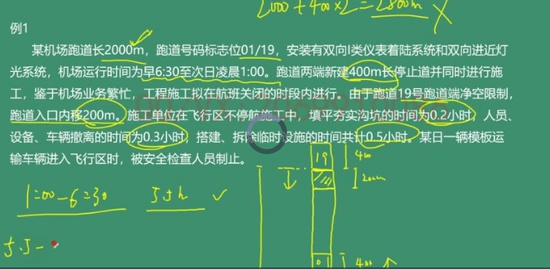 2000 + 400×2 = 2800m ×
例1
某机场跑道长2000m，跑道号码标志位01/19，安装有双向I类仪表着陆系统和双向进近灯
光系统，机场运行时间为早6:30至次日凌晨1:00。跑道两端新建400m长停止道并同时进行施
工，鉴于机场业务繁忙，工程施工拟在航班关闭的时段内进行。由于跑道19号跑道端净空限制，
跑道入口内移200m。施工单位在飞行区不停航施工中，填平夯实沟坑的时间为0.2小时，人员、
设备、车辆撤离的时间为0.3小时，搭建、拆除临时设施的时间共计0.5小时。某日一辆模板运
输车辆进入飞行区时，被安全检查人员制止。
19
400
200m
1:00-6:30 5.5h ✓
5.5-
01
400